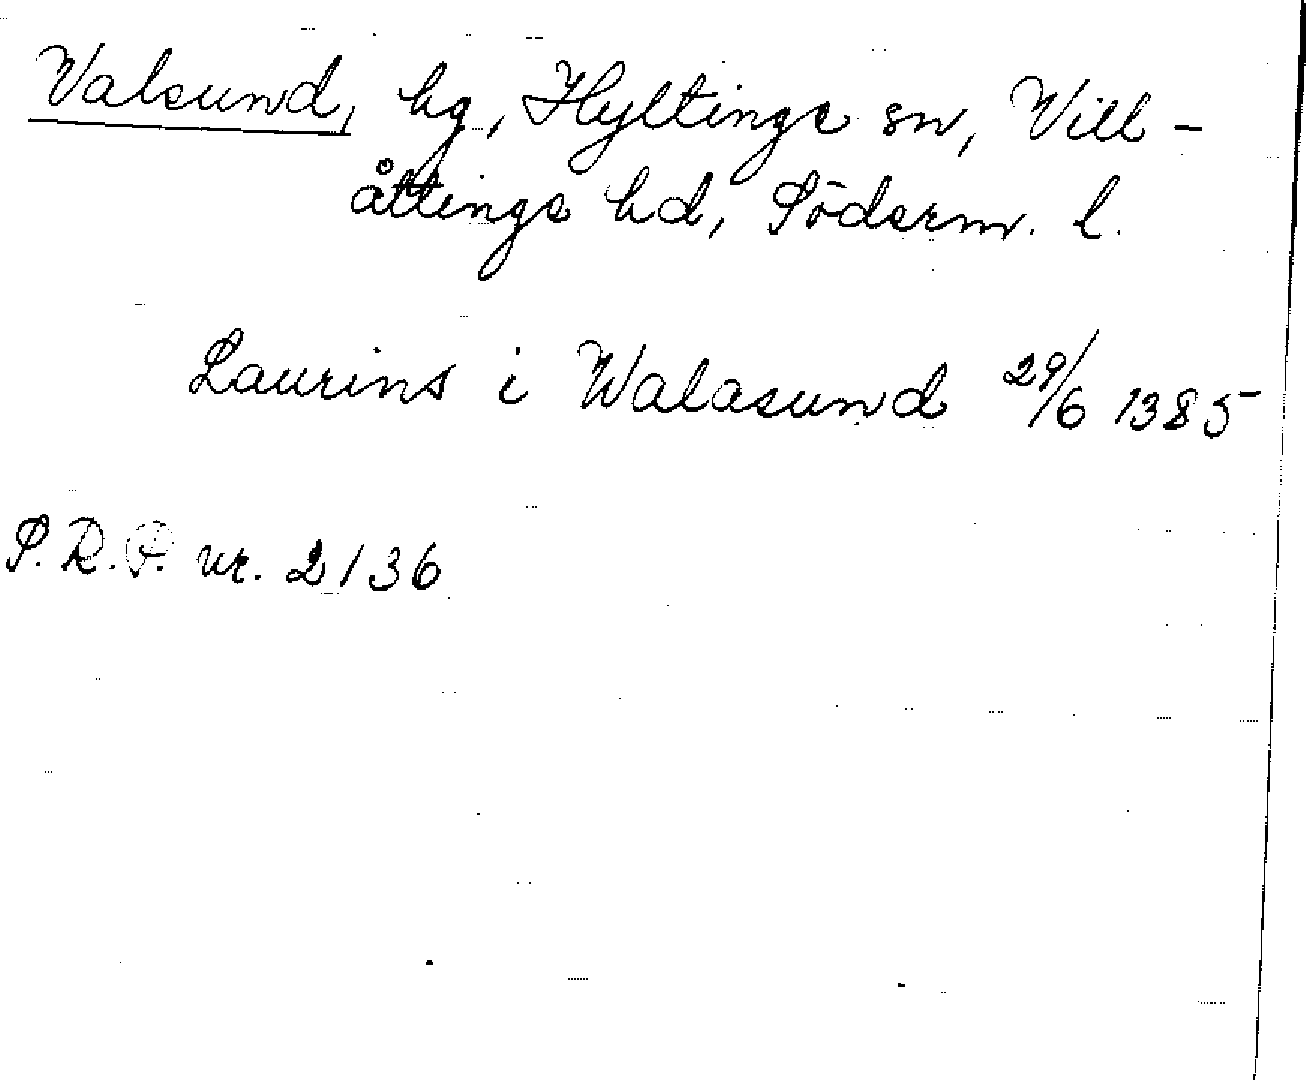 Valsund, hg, Hyltinge sn, Vill-
åttinge hd, Söderm. l.
Laurins i Walasund 29/6 1385
S.R.P. nr. 2136